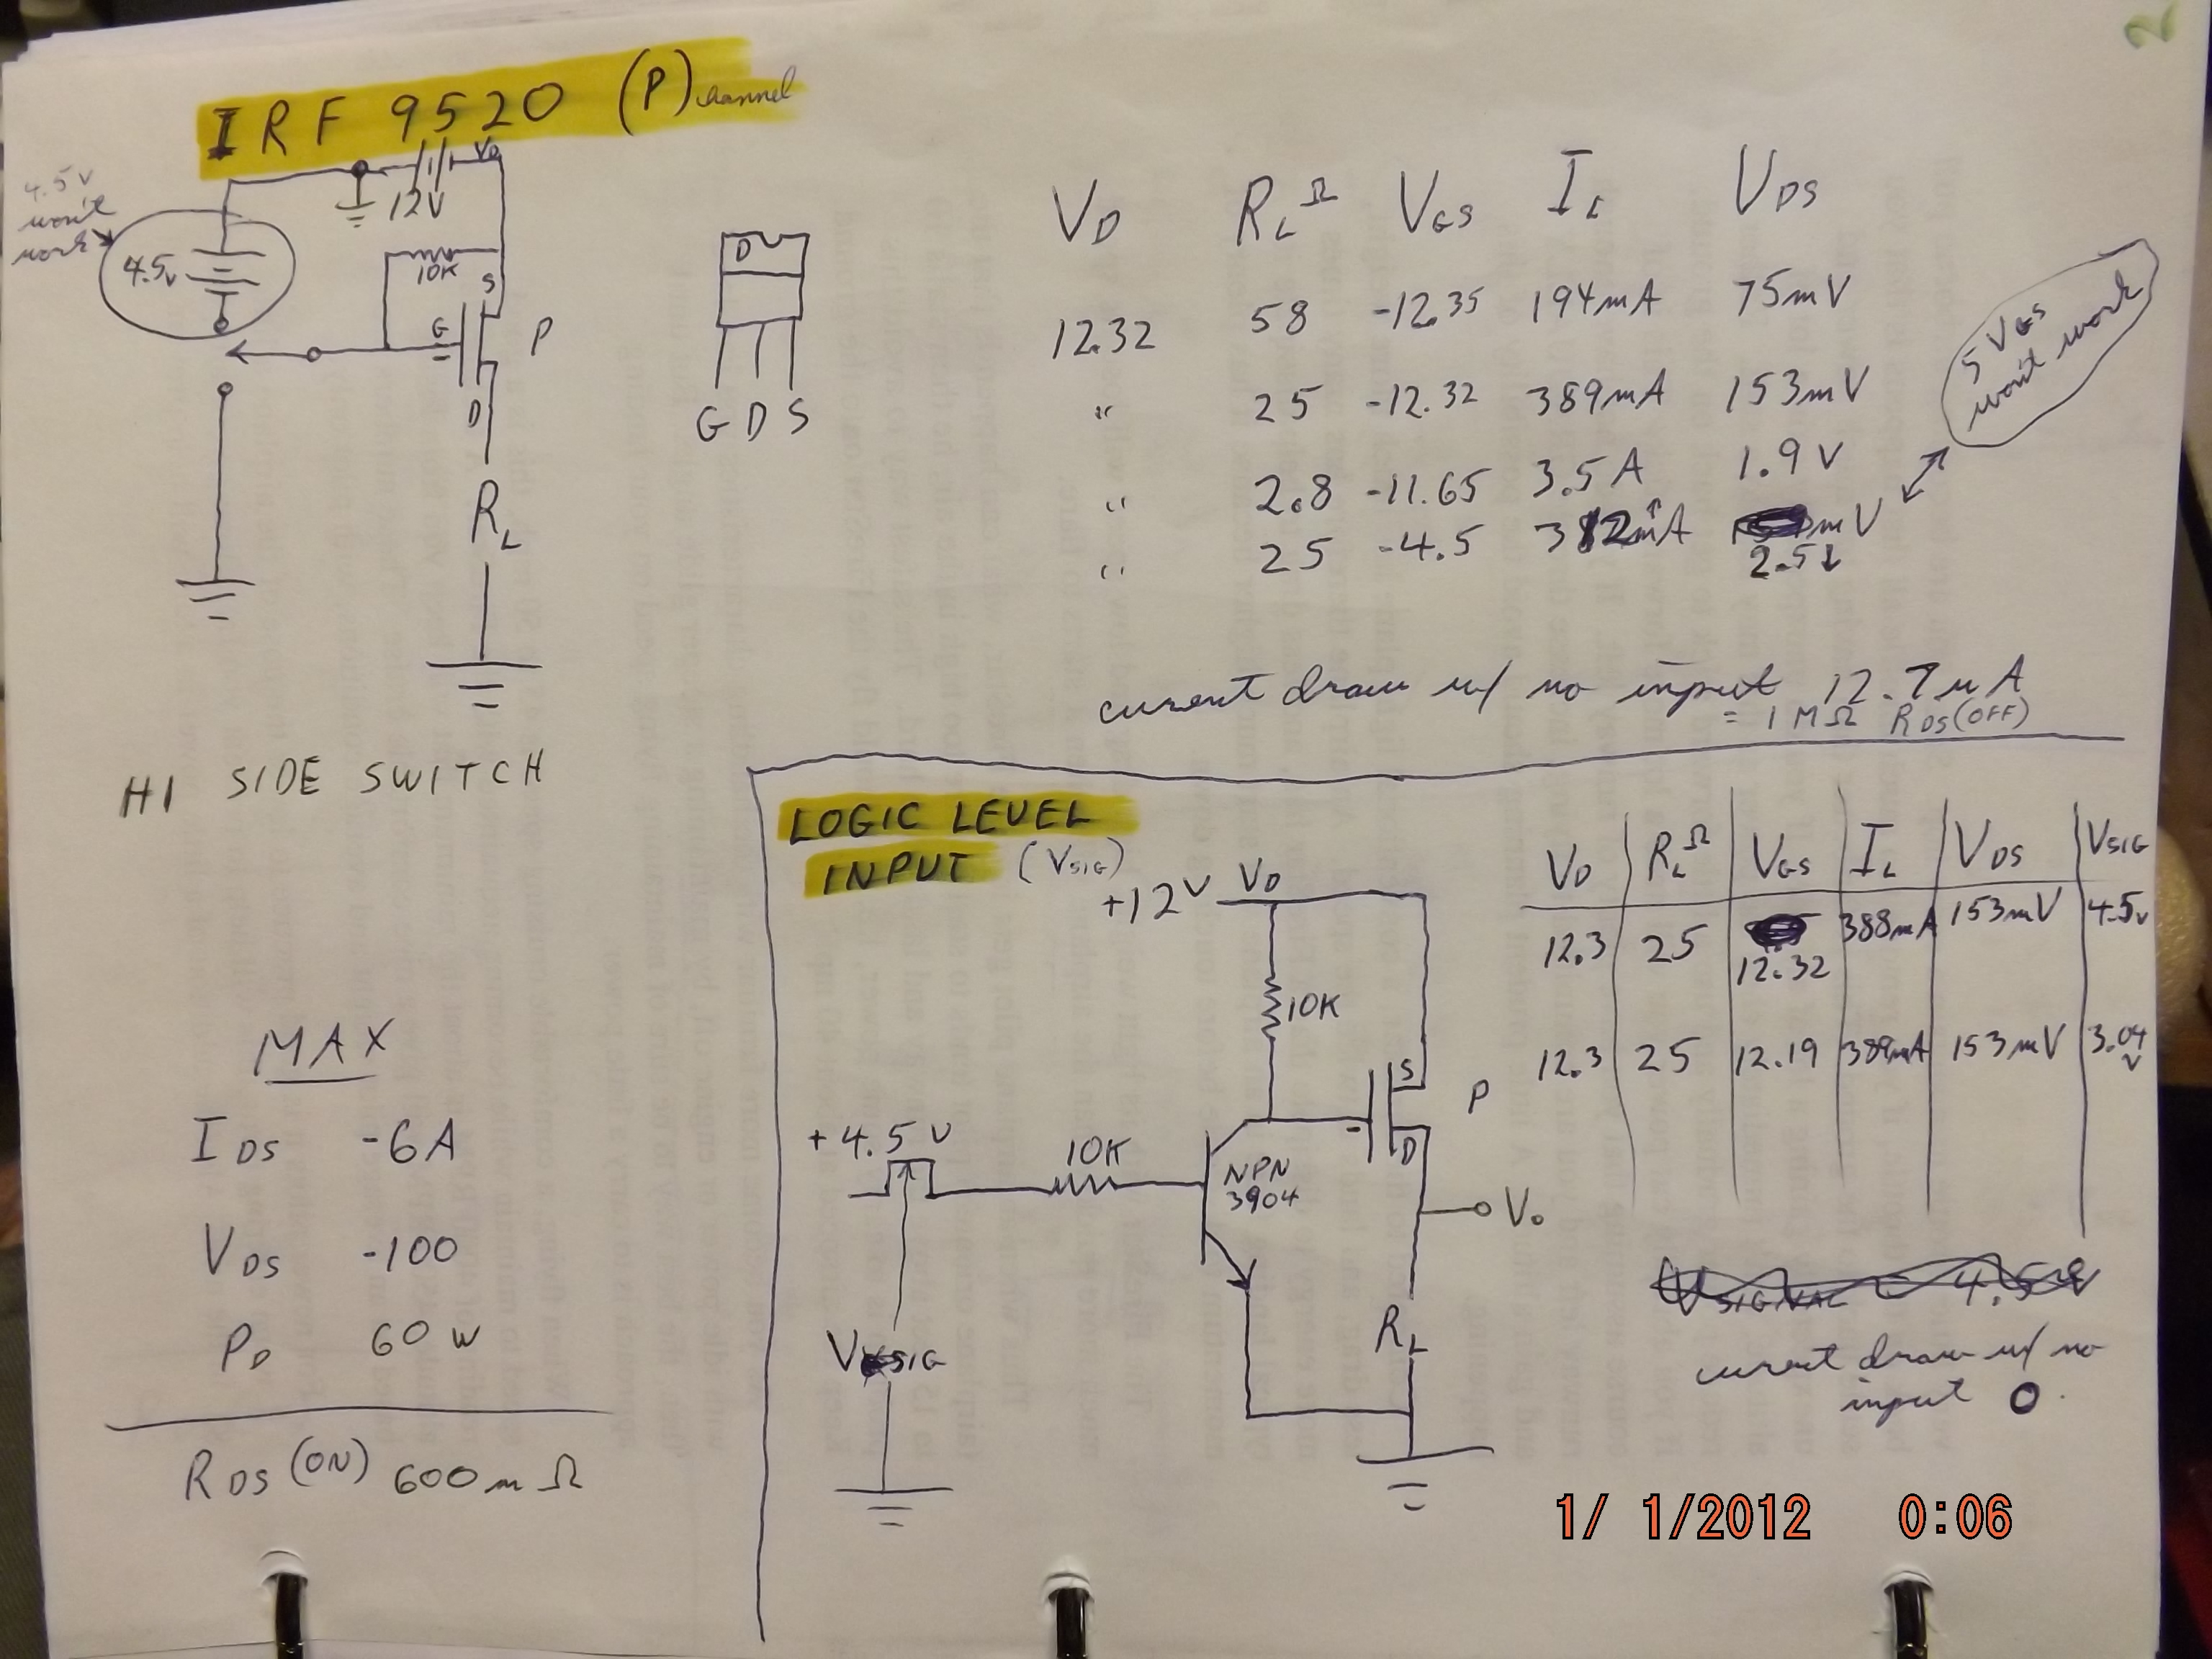 2
IRF 9520 (P) channel
4.5v
won't
work
4.5v
12V
VD
10K
S
G
D
P
RL
D
G D S
VD RLΩ VGS IL VDS
12.32 58 -12.35 194mA 75mV
" 25 -12.32 389mA 153mV
" 2.8 -11.65 3.5A 1.9V
" 25 -4.5 mV
2.5↓
5 VGS
won't work
current draw w/ no input 12.7μA
= 1MΩ RDS(OFF)
HI SIDE SWITCH
MAX
IDS -6A
VDS -100
PD 60W
RDS(ON) 600mΩ
LOGIC LEVEL
INPUT (VSIG)
+12V VD
10K
S
D
P
+4.5V
10K
NPN
3904
Vo
VSIG
RL
VD RLΩ VGS IL VDS VSIG
12.3 25 12.32 388mA 153mV 4.5v
12.3 25 12.19 389mA 153mV 3.04v
VSIGNAL = 4.5V
curent draw w/ no
input 0
1/ 1/2012 0:06